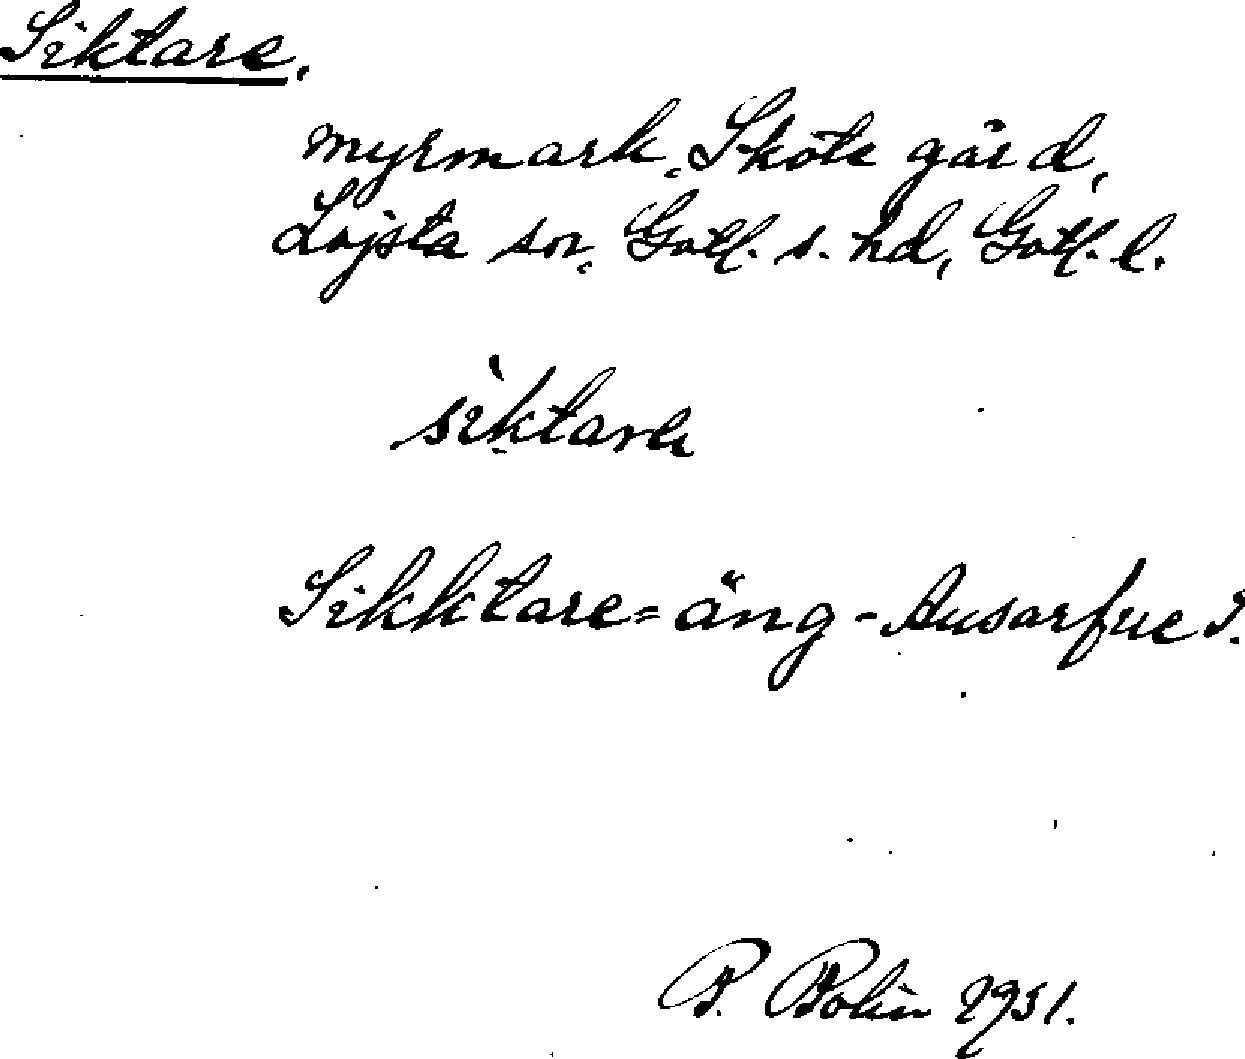 Siktare.
myrmark, Sköte gård,
Lojsta sn, Gotl. s. hd, Gotl. l.
sìktarɐ
Sikktare=äng - Ausarfve S.
P. Bolin 1931.